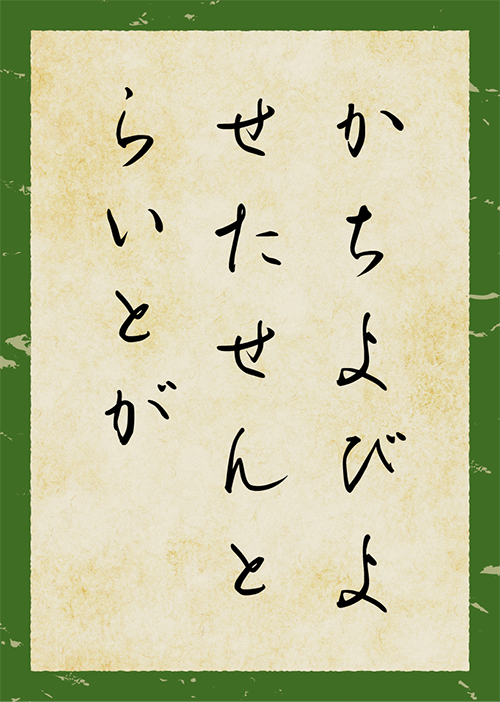 かちよびよ
せたせんと
らいとが